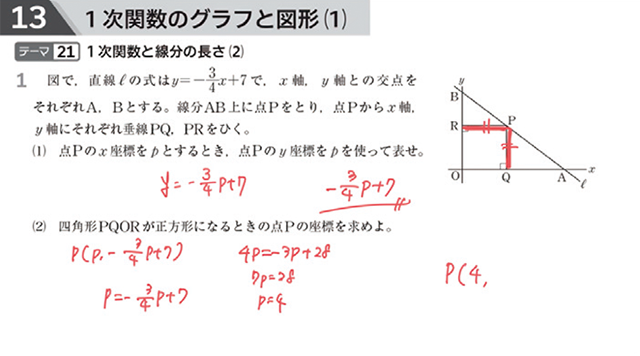 13 1次関数のグラフと図形(1)
テーマ 21 1次関数と線分の長さ(2)
1 図で，直線ℓの式はy=-3/4x+7で，x軸，y軸との交点を
それぞれA，Bとする。線分AB上に点Pをとり，点Pからx軸，
y軸にそれぞれ垂線PQ，PRをひく。
(1) 点Pのx座標をpとするとき，点Pのy座標をpを使って表せ。
y=-3/4p+7
-3/4p+7
(2) 四角形PQORが正方形になるときの点Pの座標を求めよ。
P(p, -3/4p+7)
p=-3/4p+7
4p=-3p+28
7p=28
p=4
P(4,
y
B
R
P
O
Q
A
x
ℓ